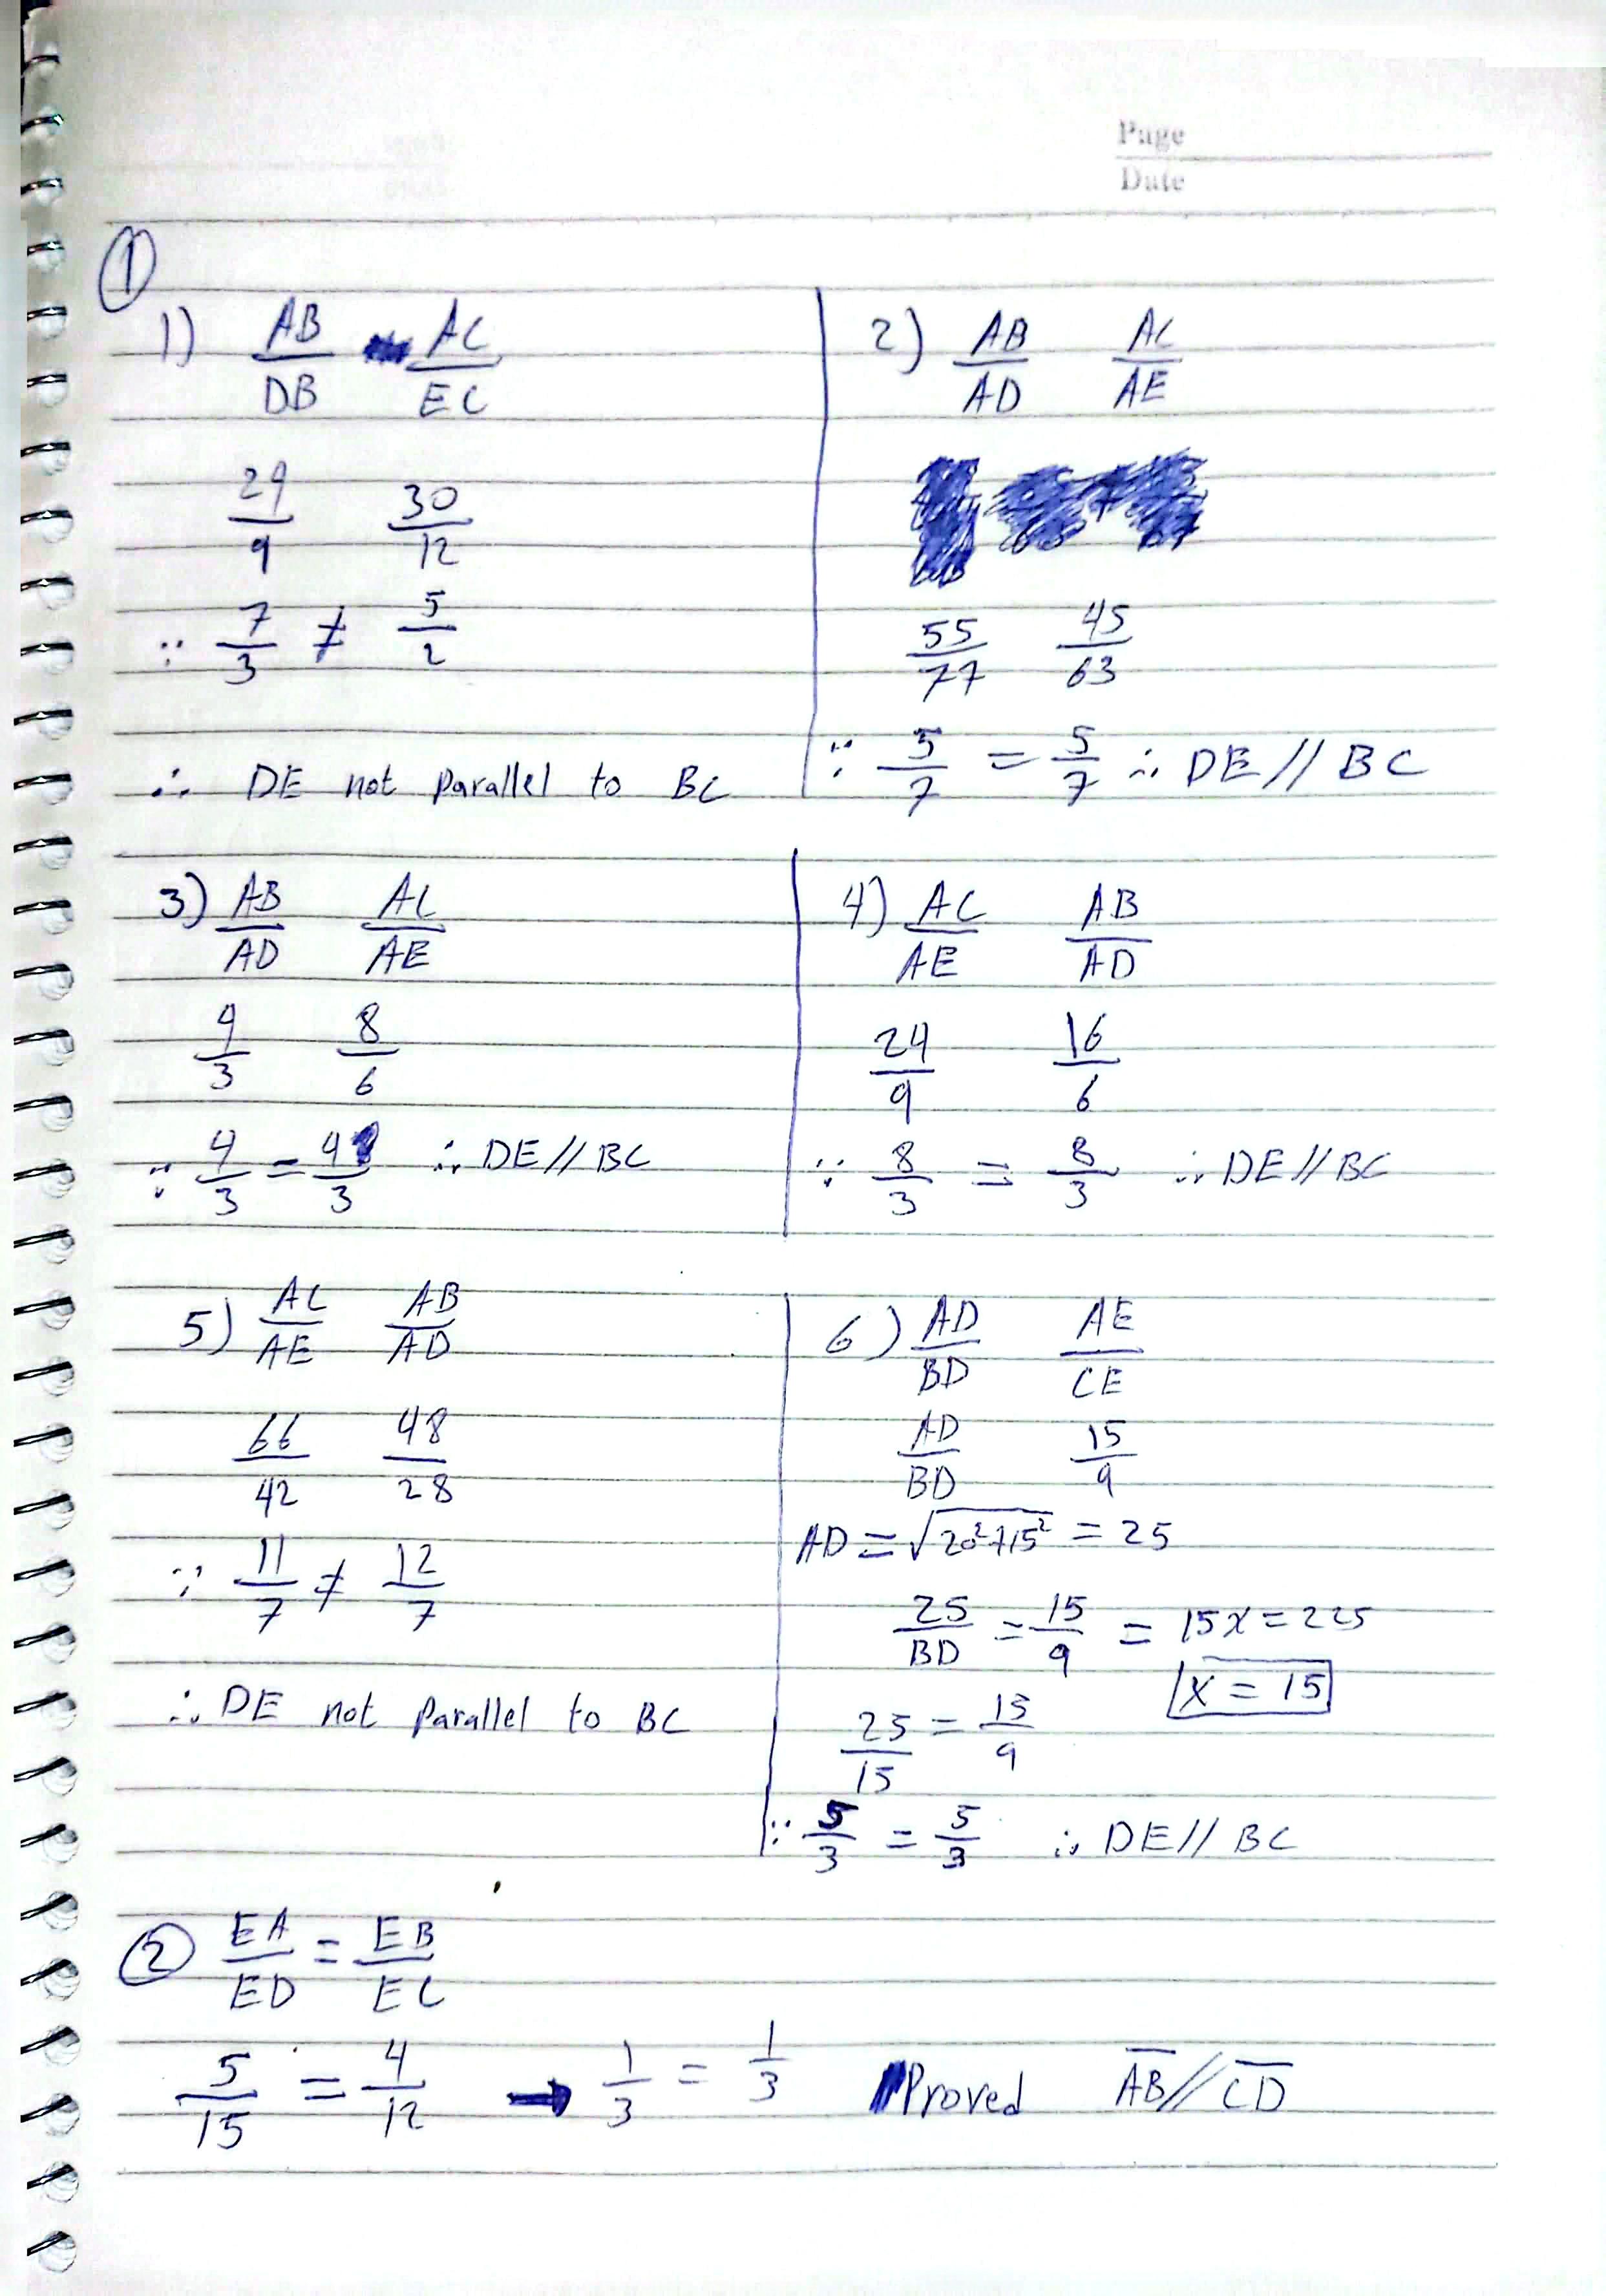 Page
Date
①
1) AB/DB AC/EC
29/9 30/12
∵ 7/3 ≠ 5/2
∴ DE not Parallel to BC
2) AB/AD AC/AE
55/77 45/63
∵ 5/7 = 5/7 ∴ DE // BC
3) AB/AD AC/AE
4/3 8/6
∵ 4/3 = 4/3 ∴ DE // BC
4) AC/AE AB/AD
24/9 16/6
∵ 8/3 = 8/3 ∴ DE // BC
5) AC/AE AB/AD
66/42 48/28
∵ 11/7 ≠ 12/7
∴ DE not Parallel to BC
6) AD/BD AE/CE
AD/BD 15/9
AD = √20²+15² = 25
25/BD = 15/9 = 15x = 225
x = 15
25/15 = 15/9
∵ 5/3 = 5/3 ∴ DE // BC
② EA/ED = EB/EC
5/15 = 4/12 → 1/3 = 1/3 Proved AB // CD